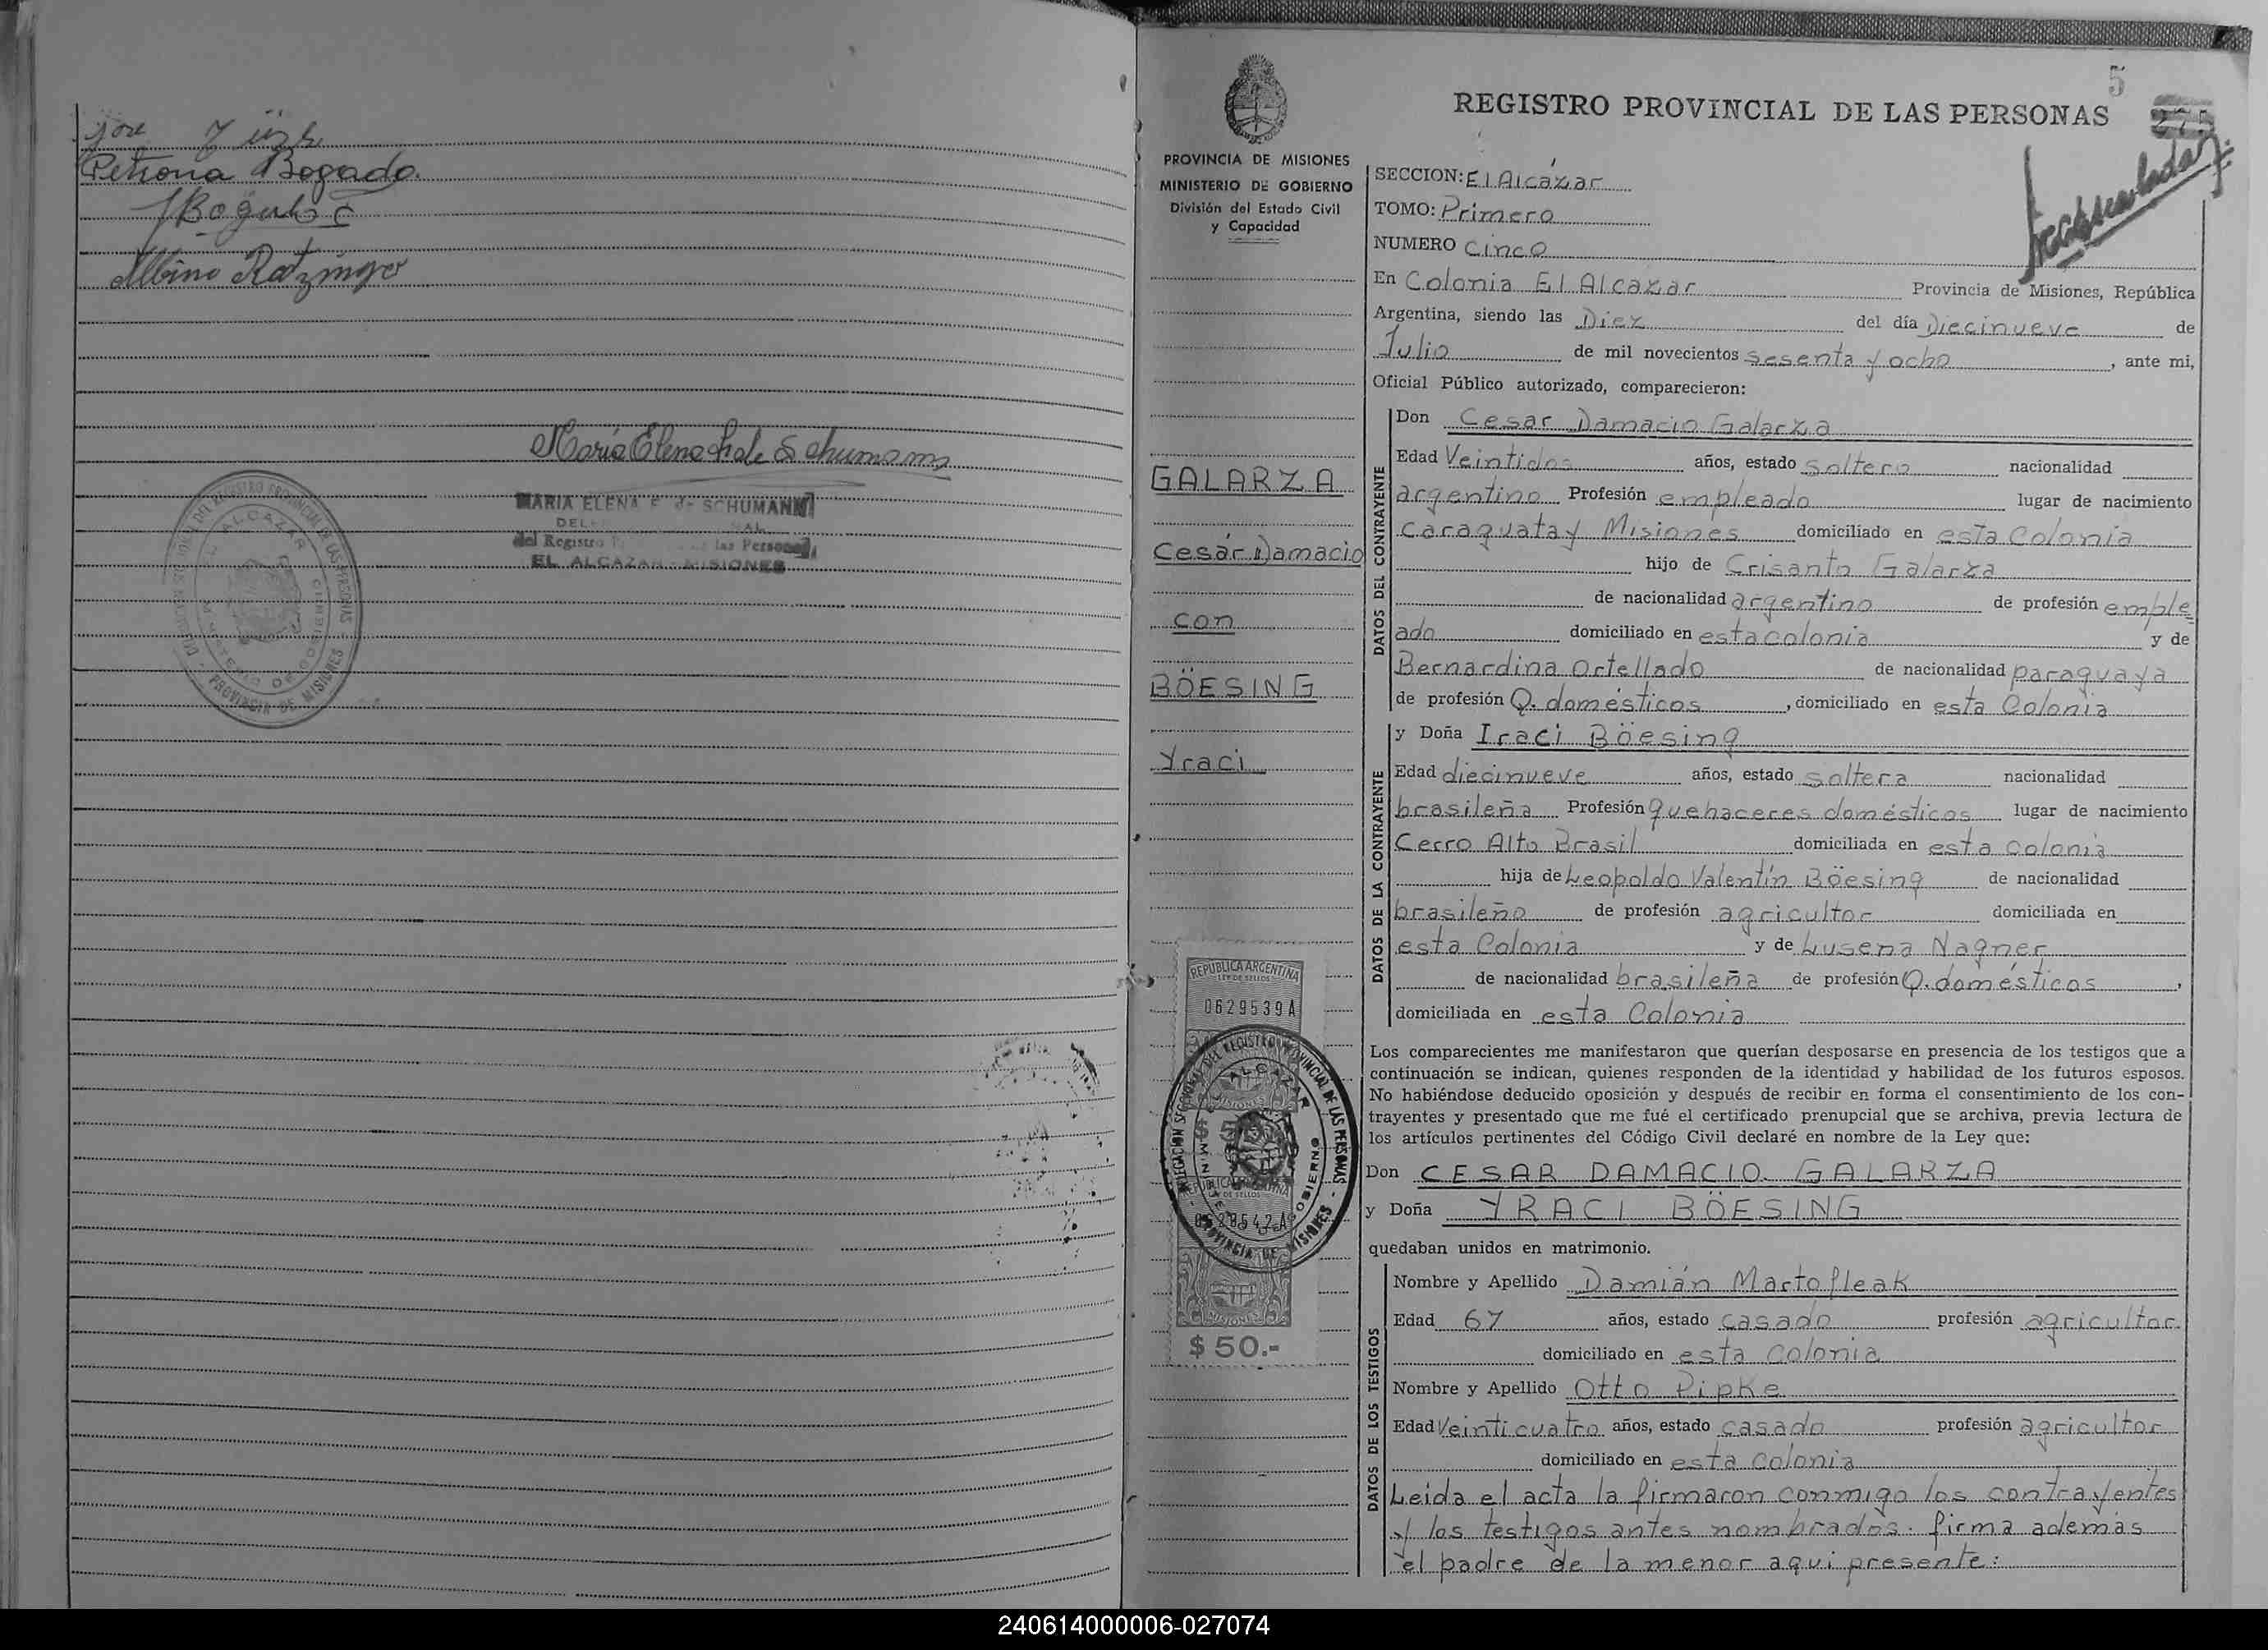 Petrona Bogado
Albino Ratzinger
Maria Elena de Schumann
MARIA ELENA F. de SCHUMANN
del Registro las Personas
EL ALCAZAR - MISIONES
PROVINCIA DE MISIONES
5
REGISTRO PROVINCIAL DE LAS PERSONAS
275
PROVINCIA DE MISIONES
MINISTERIO DE GOBIERNO
División del Estado Civil
y Capacidad
GALARZA
Cesár Damacio
con
BÖESING
Yraci
REPUBLICA ARGENTINA
LEY DE SELLOS
0629539A
DELEGACION SECCIONAL DEL REGISTRO PROVINCIAL DE LAS PERSONAS
EL ALCAZAR
MISIONES
PROVINCIA DE MISIONES
MISIONES
$ 50.-
SECCION: El Alcázar
TOMO: Primero
NUMERO Cinco
En Colonia El Alcazar Provincia de Misiones, República
Argentina, siendo las Diez del día Diecinueve de
Julio de mil novecientos sesenta y ocho, ante mi,
Oficial Público autorizado, comparecieron:
DATOS DEL CONTRAYENTE
Don Cesar Damacio Galarza
Edad Veintidos años, estado soltero nacionalidad
argentino Profesión empleado lugar de nacimiento
Caraguatay Misiones domiciliado en esta Colonia
hijo de Crisanto Galarza
de nacionalidad argentino de profesión emple
ado domiciliado en esta colonia y de
Bernardina Ortellado de nacionalidad paraguaya
de profesión Q. domésticos, domiciliado en esta Colonia
DATOS DE LA CONTRAYENTE
y Doña Iraci Böesing
Edad diecinueve años, estado soltera nacionalidad
brasileña Profesión quehaceres domésticos lugar de nacimiento
Cerro Alto Brasil domiciliada en esta Colonia
hija de Leopoldo Valentín Böesing de nacionalidad
brasileño de profesión agricultor domiciliada en
esta Colonia y de Lusena Nagner
de nacionalidad brasileña de profesión Q. domésticos,
domiciliada en esta Colonia
Los comparecientes me manifestaron que querían desposarse en presencia de los testigos que a
continuación se indican, quienes responden de la identidad y habilidad de los futuros esposos.
No habiéndose deducido oposición y después de recibir en forma el consentimiento de los con-
trayentes y presentado que me fué el certificado prenupcial que se archiva, previa lectura de
los artículos pertinentes del Código Civil declaré en nombre de la Ley que:
Don CESAR DAMACIO GALARZA
y Doña YRACI BÖESING
quedaban unidos en matrimonio.
DATOS DE LOS TESTIGOS
Nombre y Apellido Damián Martofleak
Edad 67 años, estado casado profesión agricultor
domiciliado en esta Colonia
Nombre y Apellido Otto Pipke
Edad Veinticuatro años, estado casado profesión agricultor
domiciliado en esta Colonia
Leida el acta la firmaron conmigo los contrayentes
y los testigos antes nombrados. firma además
el padre de la menor aqui presente:
240614000006-027074